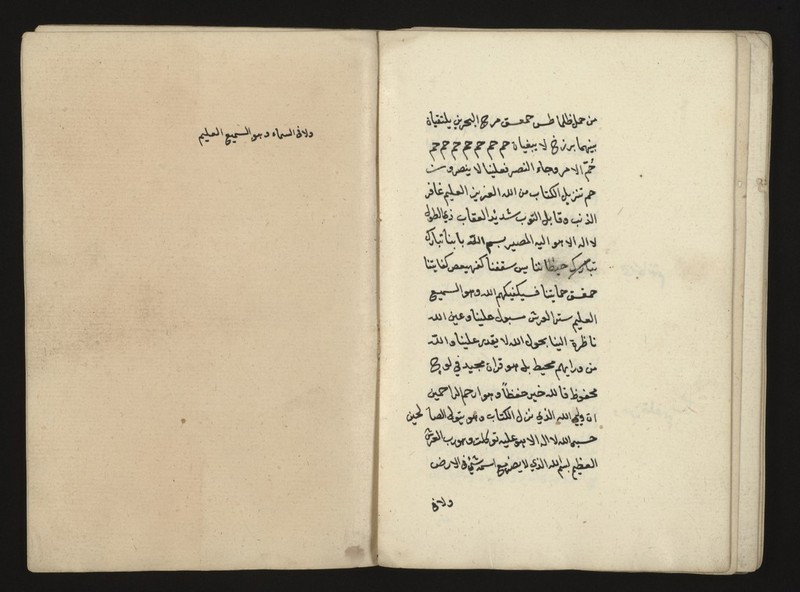 من حمل ظلما طس حمعسق مرج البحرين يلتقيان
بينهما برزخ لا يبغيان حم حم حم حم حم حم حم
حُمّ الامر وجاء النصر فعلينا لا ينصرون
حم تنزيل الكتاب من الله العزيز العليم غافر
الذنب وقابل التوب شديد العقاب ذي الطول
لا اله الا هو اليه المصير بسم الله بابنا تبارك
تبارك حيطاننا يس سقفنا كهيعص كفايتنا
حمعسق حمايتنا فسيكفيكهم الله وهو السميع
العليم ستر العرش مسبول علينا وعين الله
ناظرة الينا بحول الله لا يقدر علينا والله
من ورايهم محيط بل هو قران مجيد في لوح
محفوظ فالله خير حفظاً وهو ارحم الراحمين
ان وليي الله الذي نزل الكتاب وهو يتولى الصالحين
حسبي الله لا اله الا هو عليه توكلت وهو رب العرش
العظيم بسم الله الذي لا يضر مع اسمه شئ في الارض
ولا في
ولا في السماء وهو السميع العليم